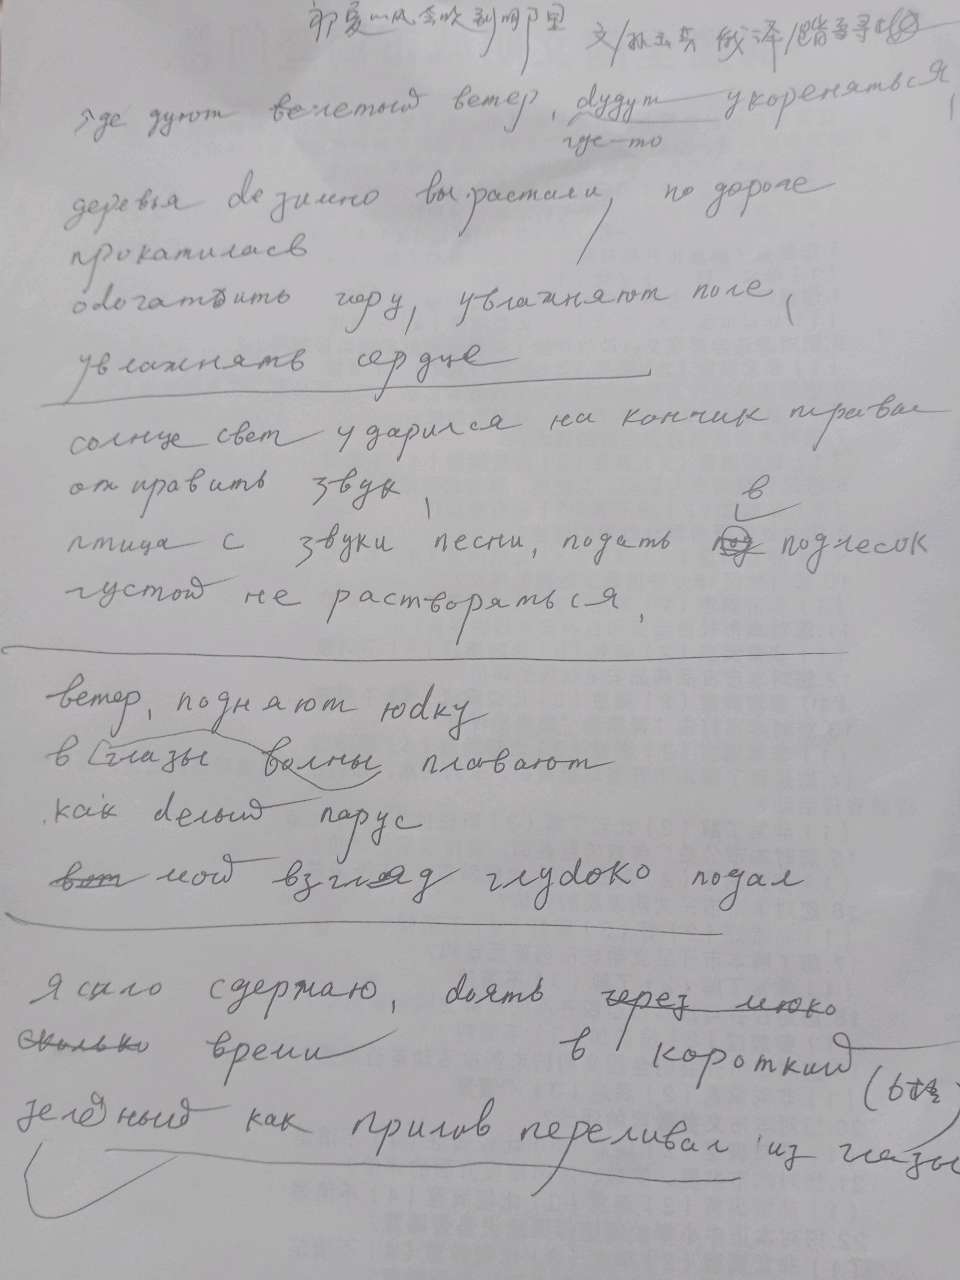 那夏一风会吹到哪里 文/孙玉英 俄译/踏寻
где дуют велетый ветер, будут укореняться,
где-то
деревья безимно вырастали, по дороге
прокатилась
обогатить гору, увлажняют поле,
увлажнять сердце
солнце свет ударился на кончик травы
отправить звук,
в
птица с звуки песни, подать подлесок
густой не растворяться,
ветер, подняют юбку
в глазы волны плавают
как белый парус
вот мой взгляд глубоко подал
я сило сдержаю, боять через мноко
сколько время в короткий
зелёный как прилив переливал из глазы